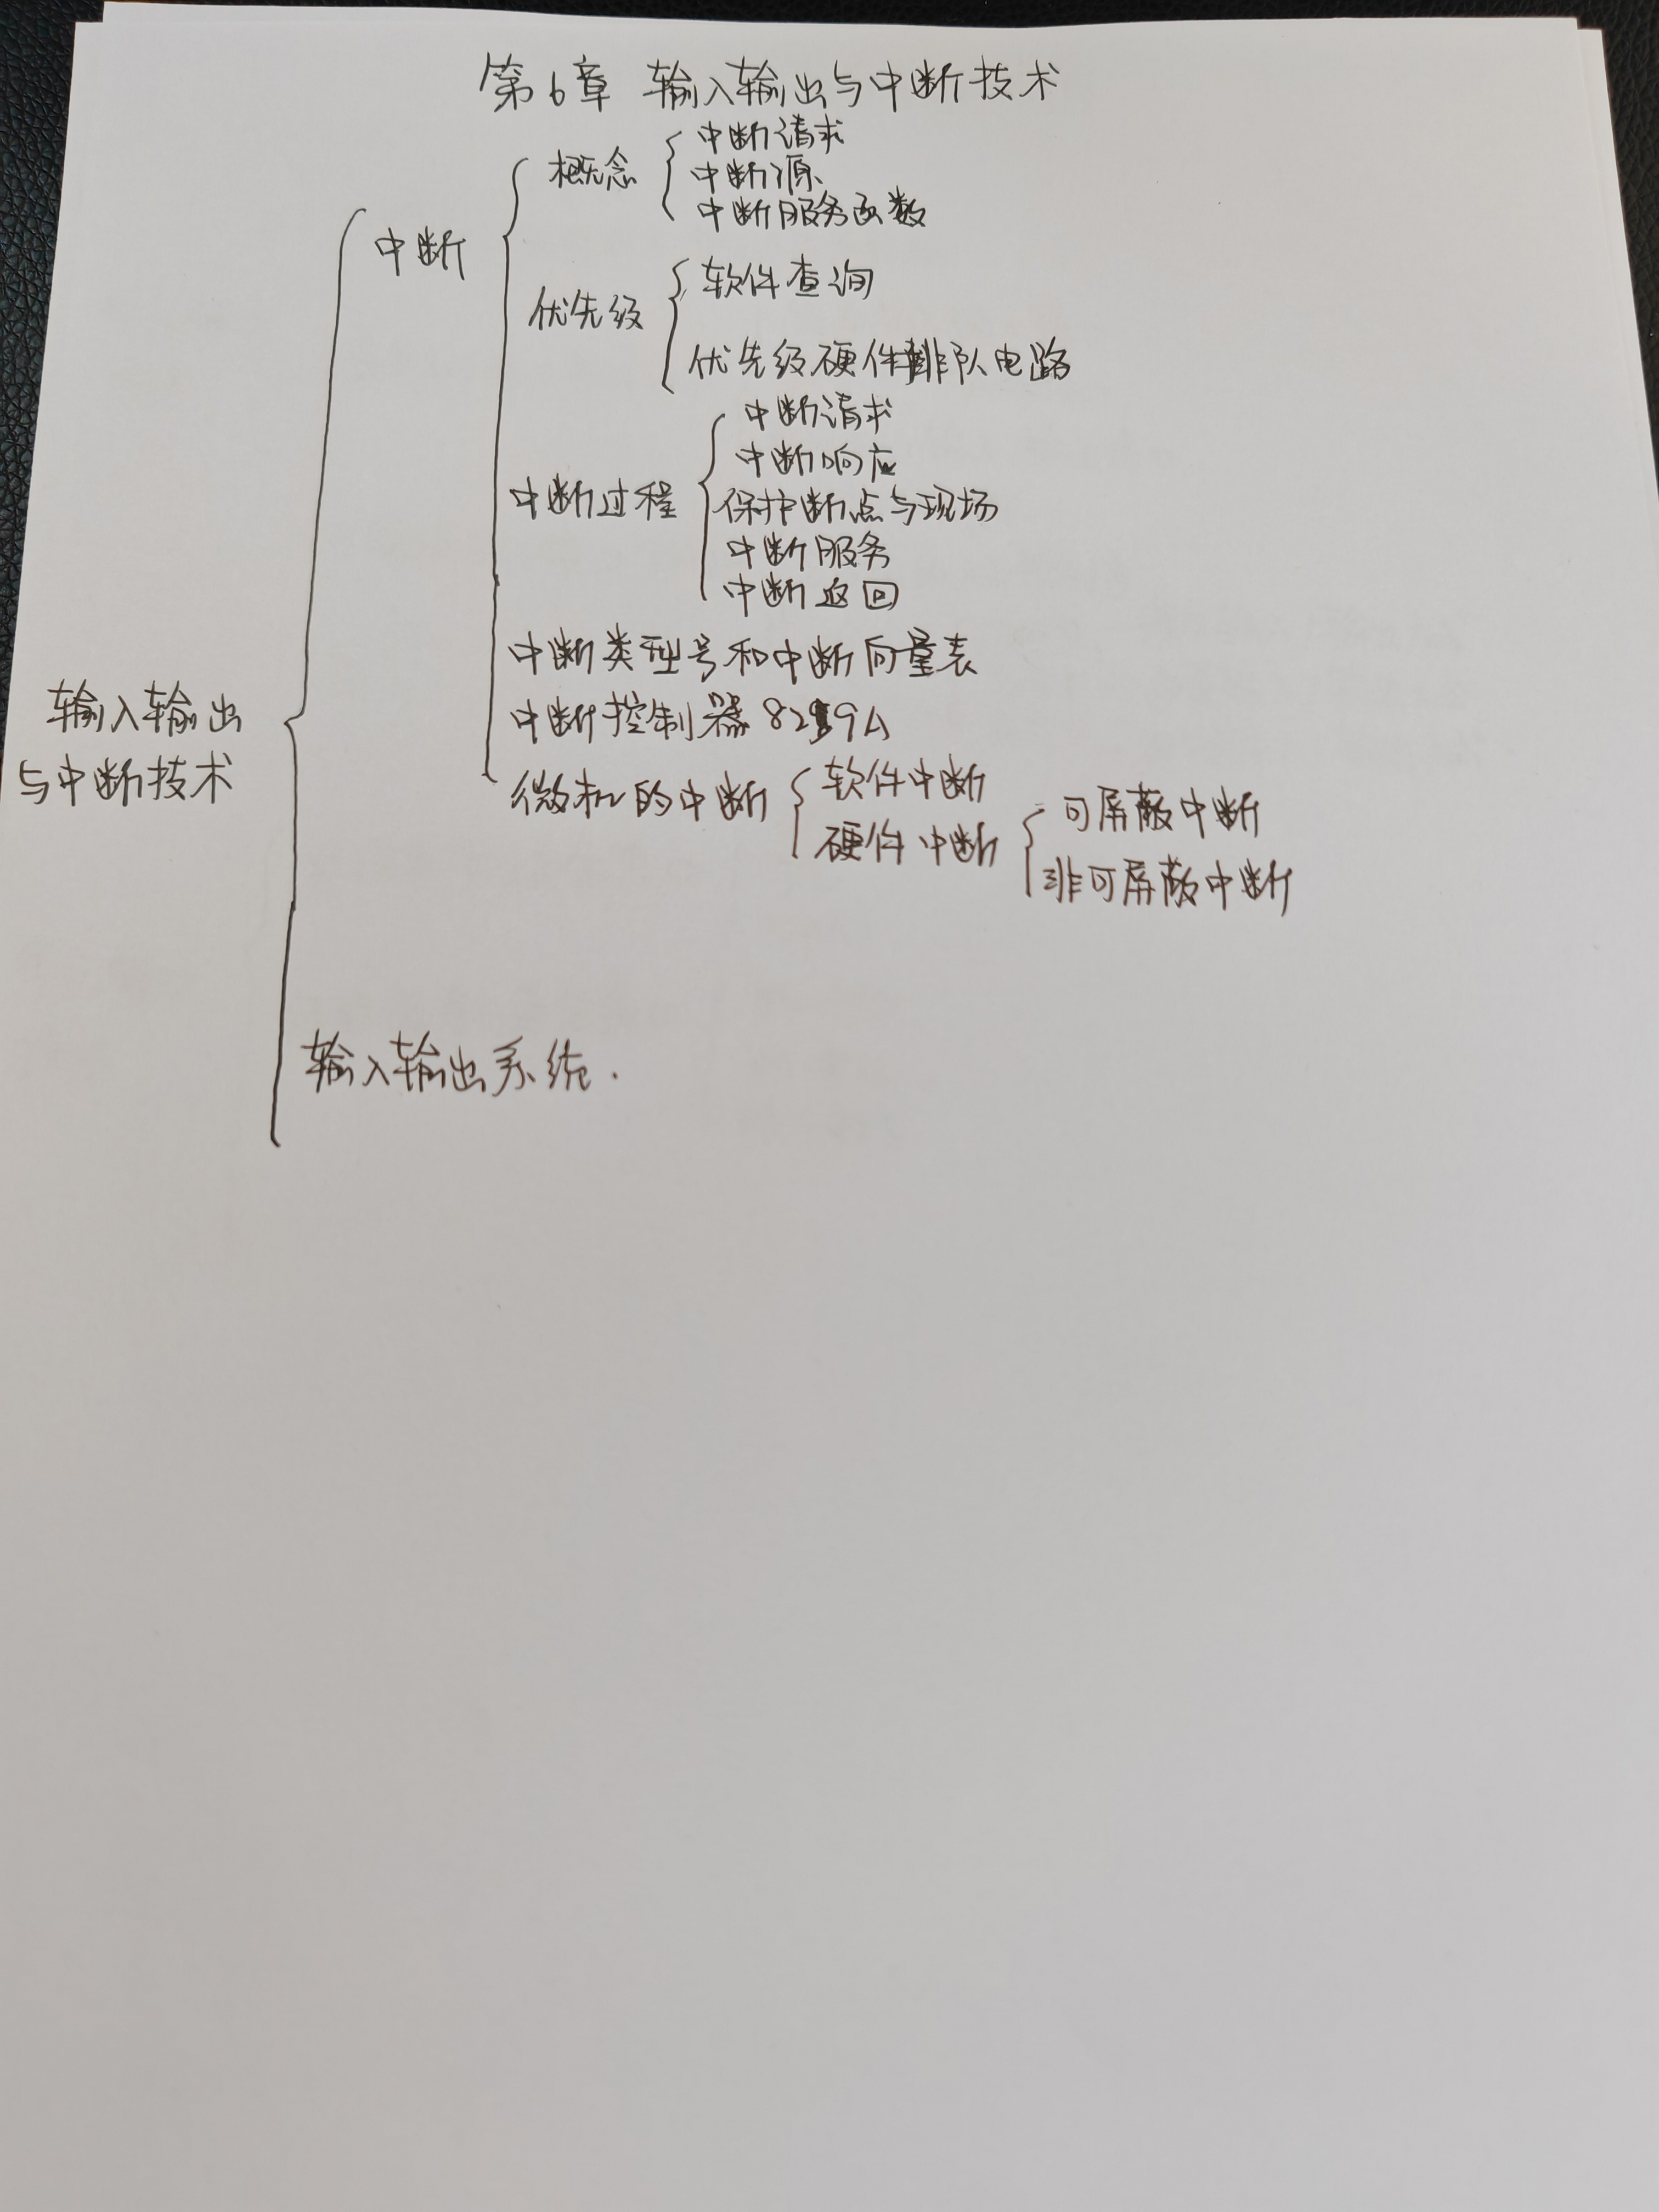 第6章 输入输出与中断技术
概念
中断请求
中断源
中断服务函数
中断
优先级
软件查询
优先级硬件排队电路
中断过程
中断请求
中断响应
保护断点与现场
中断服务
中断返回
中断类型号和中断向量表
输入输出
与中断技术
中断控制器8259A
微机的中断
软件中断
硬件中断
可屏蔽中断
非可屏蔽中断
输入输出系统.